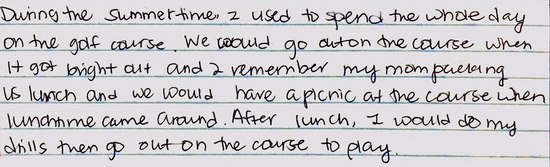 During the summertime, I used to spend the whole day
on the golf course. We would go out on the course when
it got bright out and I remember my mom packing
us lunch and we would have a picnic at the course when
lunchtime came around. After lunch, I would do my
drills then go out on the course to play.